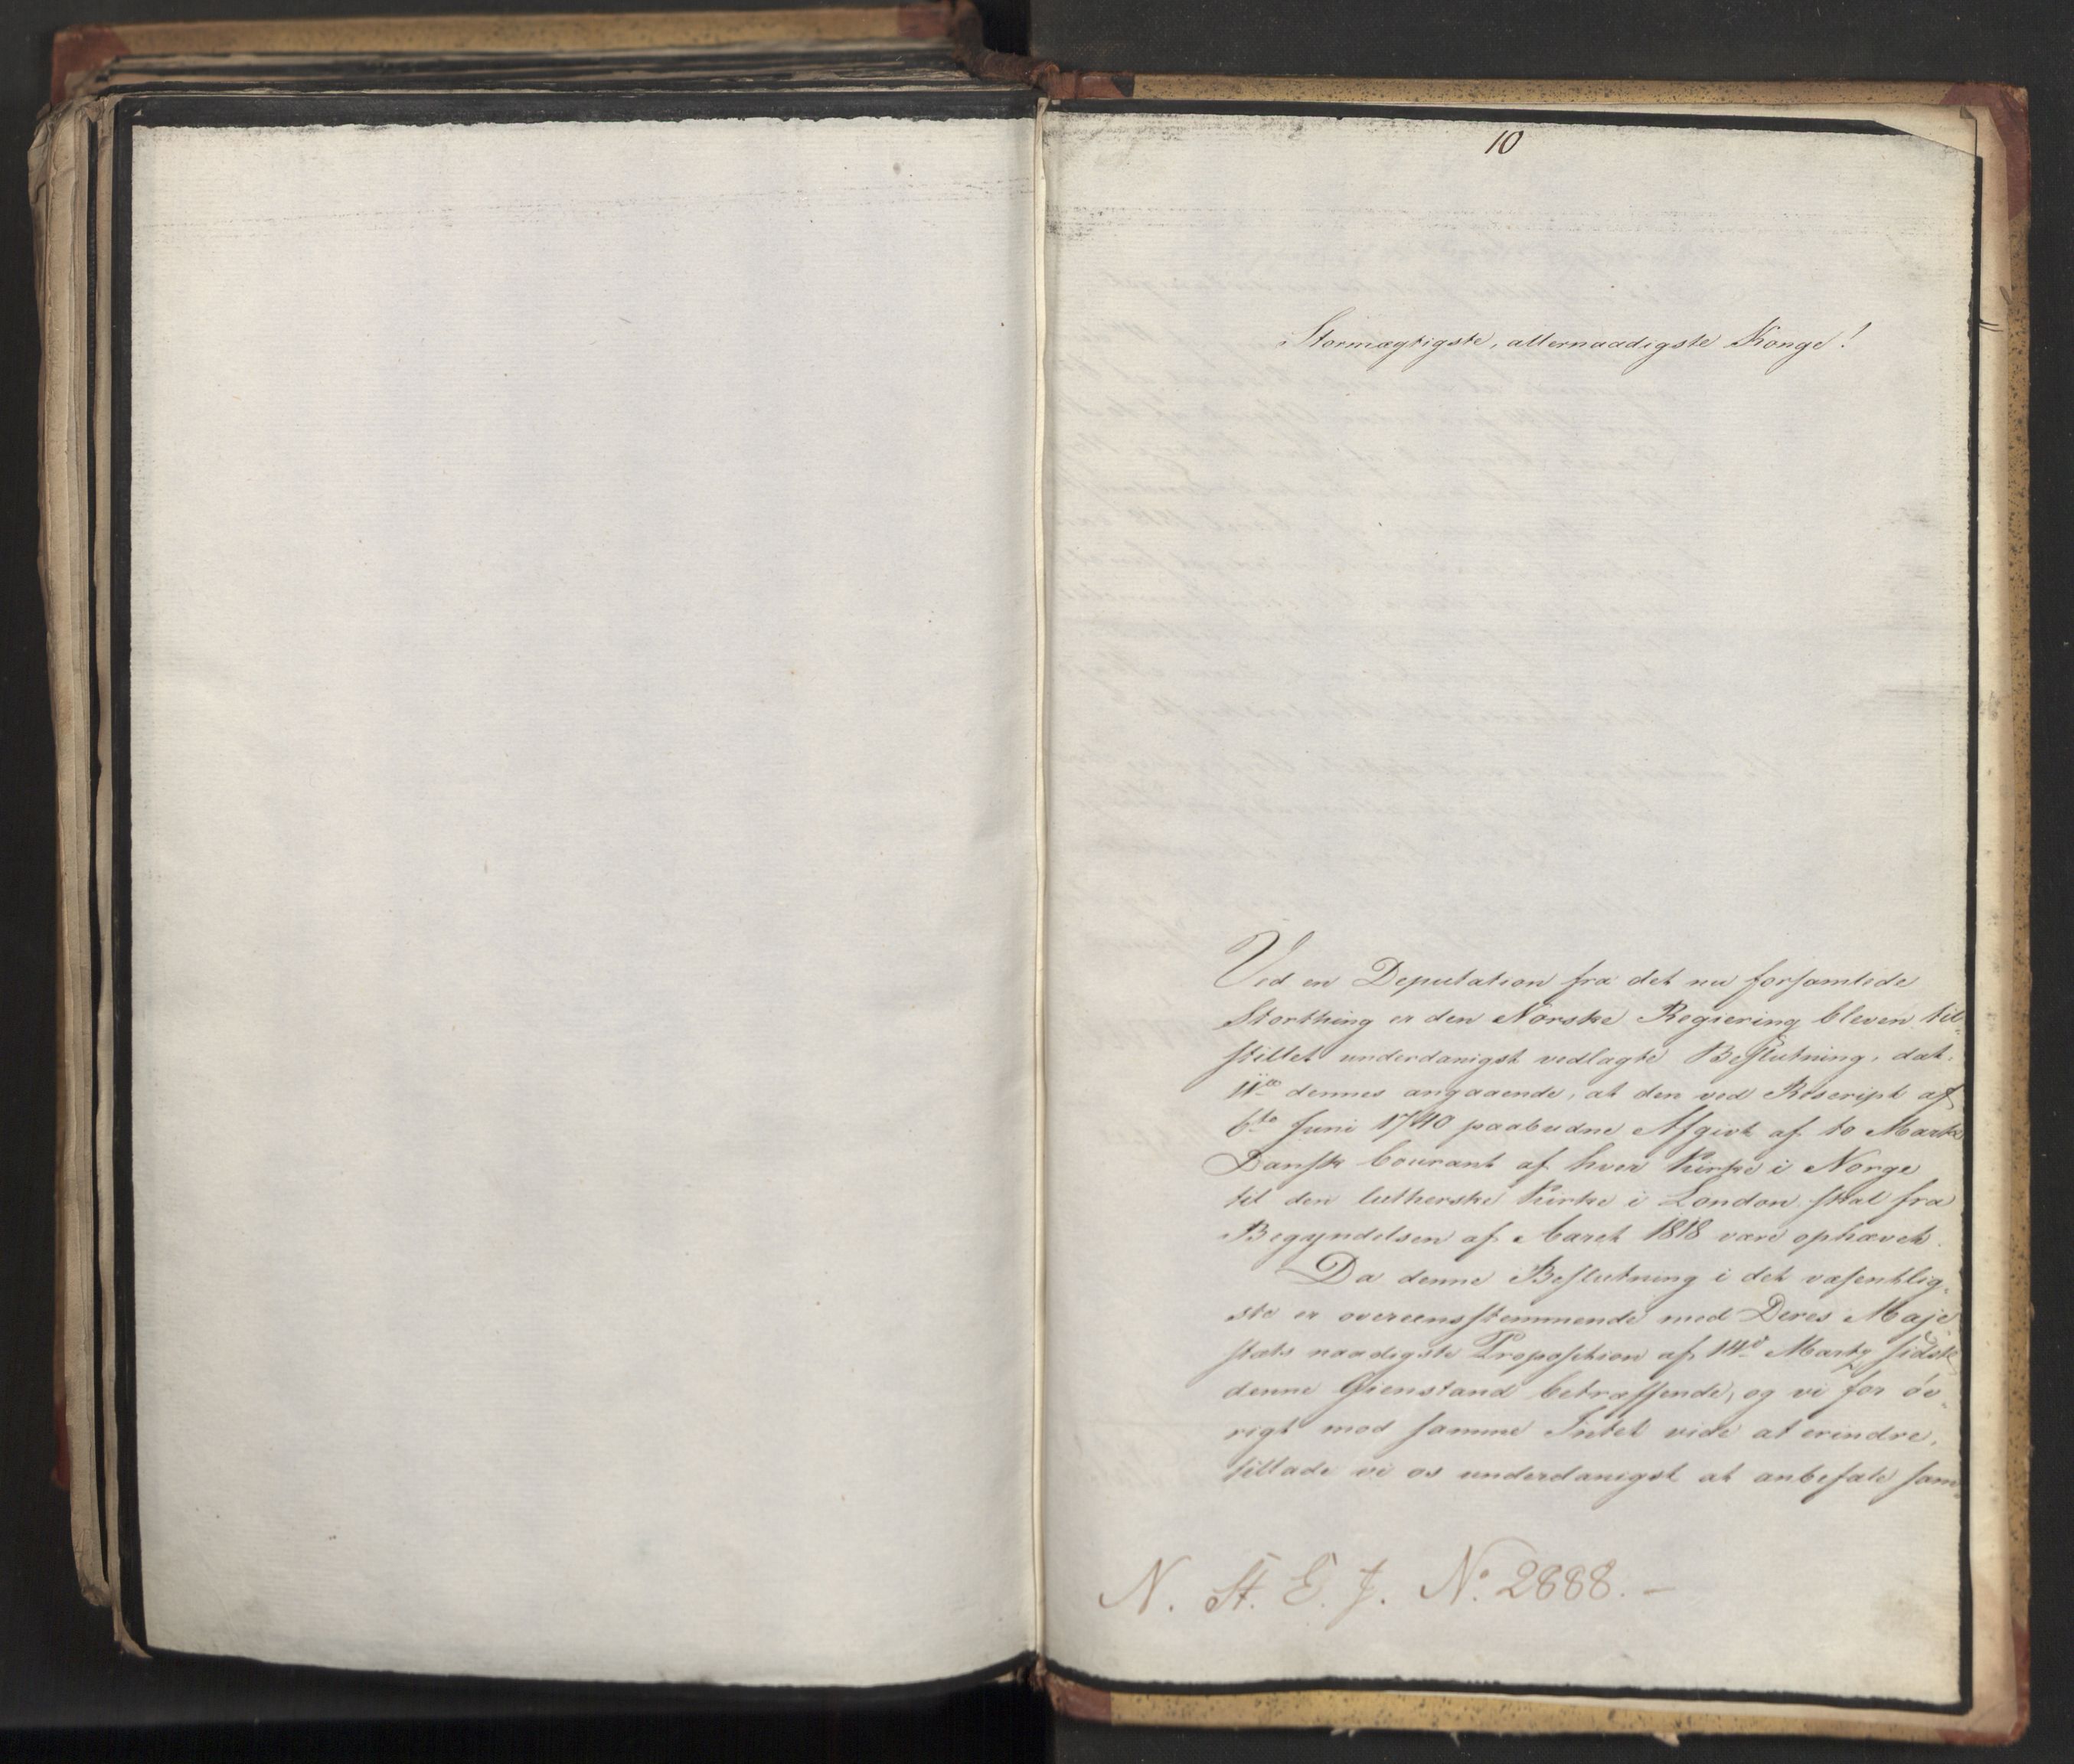 10
Stormægtigste, allernaadigste Konge!
Ved en Deputation fra det nu forsamlede
Storthing er den Norske Regiering bleven til-
stillet underdanigst vedlagte Beslutning, dat.
11te dennes angaaende, at den ved Rescript af
6te Juni 1740 paabudne Afgivt af to Mark
Dansk Courant af hver Kirke i Norge
til den lutherske Kirke i London skal fra
Begyndelsen af Aaret 1818 være ophævet.
Da denne Beslutning i det væsentlig-
ste er overeensstemmende med Deres Maje
stæts naadigste Proposition af 14d Marty sidstl
denne Gienstand betræffende, og vi for øv-
rigt mod samme Intet vide at erindre,
tillade vi os underdanigst at anbefale sam-
N. St. E. J. No. 2888. -